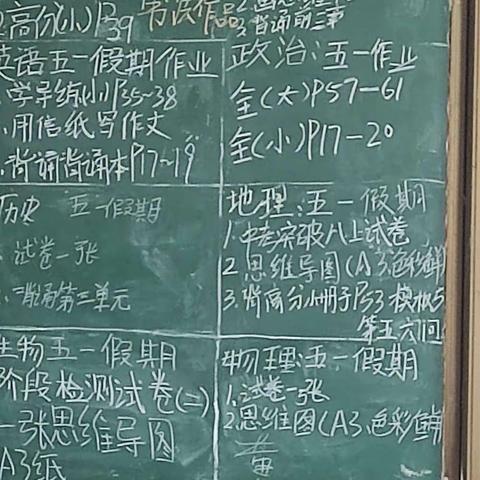 2.高分(小)P39
书法作品
3.背诵前三章
英语五一假期作业
1.学导练(小)P35~38
2.用信纸写作文
3.背诵背诵本P17~19
政治:五一作业
全(大)P57—61
全(小)P17—20
历史 五一假期
1.试卷一张
2.背诵第三单元
地理:五一假期
1.中考突破八上试卷
2.思维导图(A3、色彩鲜
3.背高分小册子P53模板5
第五六问
生物五一假期
阶段检测试卷(二)
一张思维导图
A3纸
物理:五一假期
1.试卷一张
2.思维图(A3、色彩鲜